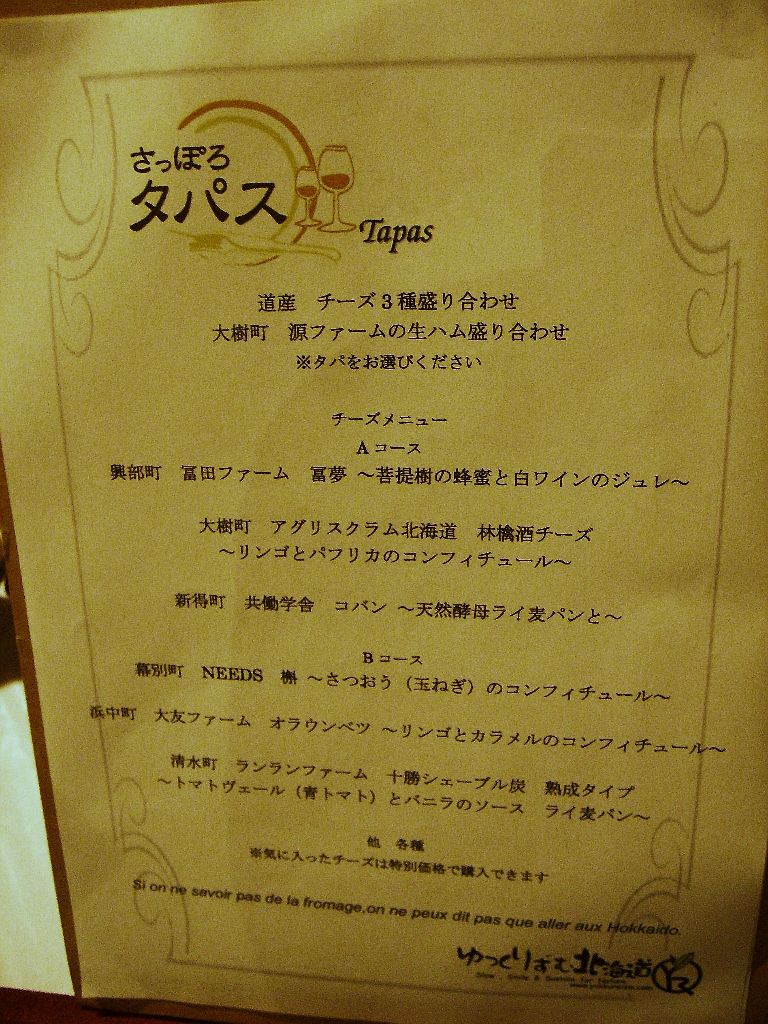 さっぽろ
タパス
Tapas
道産　チーズ３種盛り合わせ
大樹町　源ファームの生ハム盛り合わせ
※タパをお選びください
チーズメニュー
Aコース
興部町　冨田ファーム　冨夢 ～菩提樹の蜂蜜と白ワインのジュレ～
大樹町　アグリスクラム北海道　林檎酒チーズ
～リンゴとパフリカのコンフィチュール～
新得町　共働学舎　コバン ～天然酵母ライ麦パンと～
Bコース
幕別町　NEEDS　槲 ～さつおう（玉ねぎ）のコンフィチュール～
浜中町　大友ファーム　オラウンベツ ～リンゴとカラメルのコンフィチュール～
清水町　ランランファーム　十勝シェーブル炭　熟成タイプ
～トマトヴェール（青トマト）とバニラのソース　ライ麦パン～
他　各種
※気に入ったチーズは特別価格で購入できます
Si on ne savoir pas de la fromage,on ne peux dit pas que aller aux Hokkaido.
ゆっくりずむ北海道